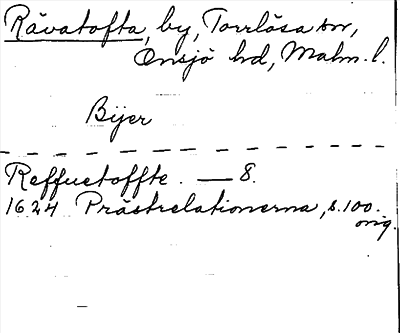 Rävatofta, by, Torrlösa sn,
Onsjö hd, Malm. l.
Bijer
Reffuetoffte. — 8.
1624 Prästrelationerna, s. 100.
orig.